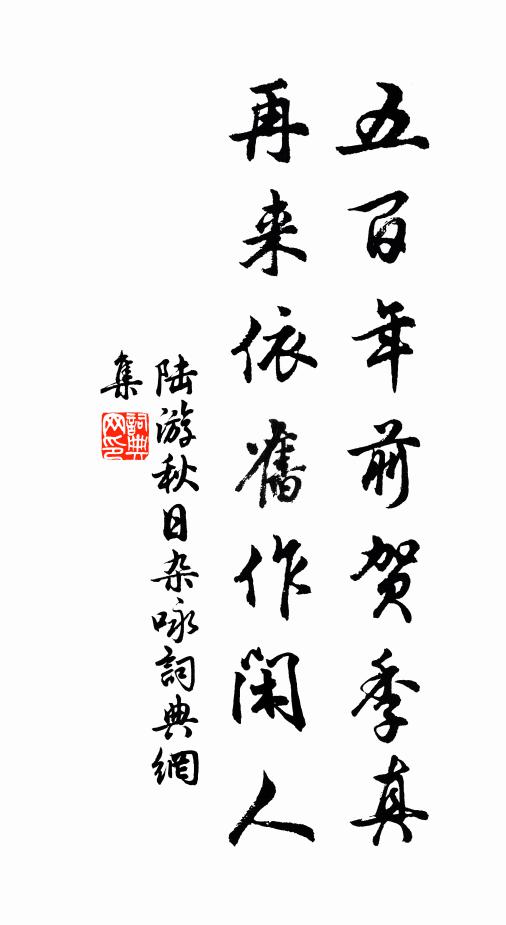 五百年前贺季真
再来依舊作闲人
陆游秋日杂咏詞典網
集
詞典
网印